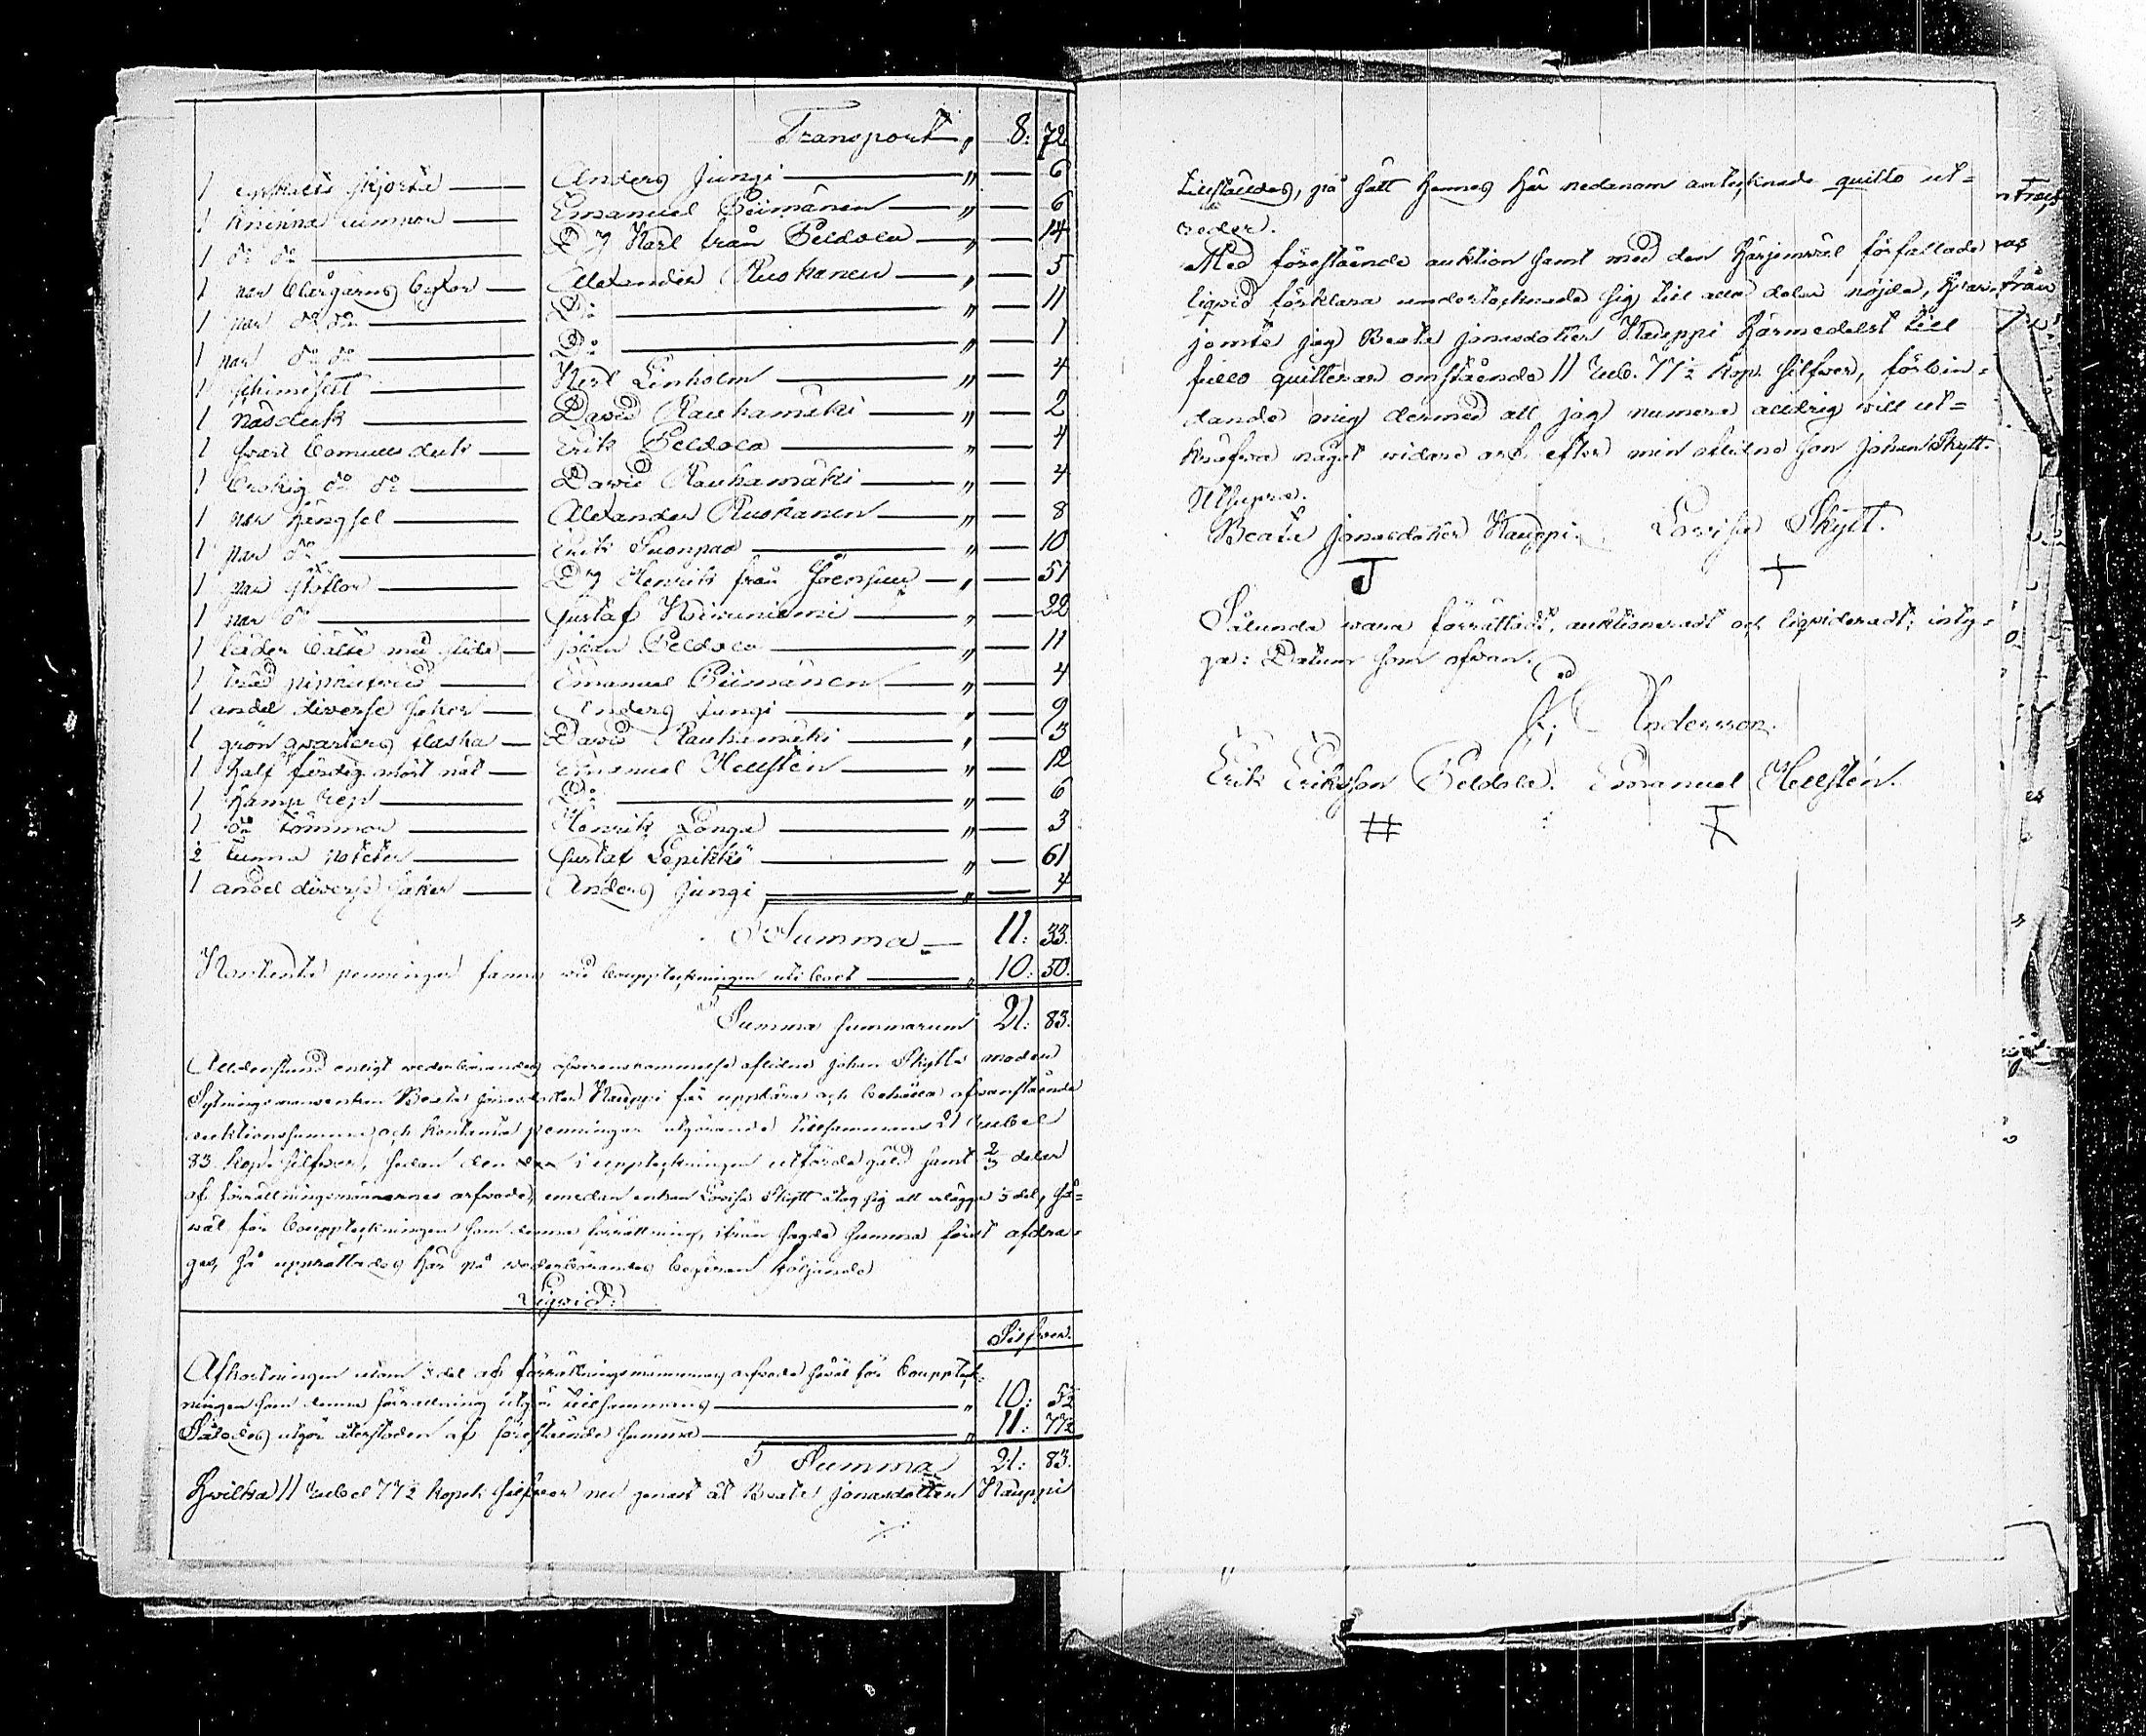 Transport " 8: 72
1 skjorta — Anders Jungi " — 6
1 — Emanuel Piimänen " — 6
1 d:o d:o — Dg Karl från Peldola " — 14
1 par blårgarns byxor — Alexander Ruskanen " — 5
1 par d:o d:o — D:o " — 11
1 par d:o d:o — D:o " — 1
1 — Karl Linholm " — 4
1 näsduk — David Rauhamäki " — 2
1 svart bomulls duk — Erik Peldola " — 4
1 brokig d:o d:o — David Rauhamäki " — 4
1 par hängsel — Alexander Ruskanen " — 8
1 par d:o — Erik Suonpää " — 10
1 par stöflor — Dg Henrik från " — 51
1 par d:o — Gustaf " — 22
1 läder bälte med slida — Johan Peldola " — 11
1 — Emanuel Piimänen " — 4
1 andel diverse saker — Anders Jungi " — 9
1 grön qvarters flaska — David Rauhamäki " — 3
1 half färdig mört nät — Emanuel Hellsten " — 12
1 hamp rep — D:o " — 6
1 d:o tömmar — Henrik Longa " — 3
½ tunna poteter — Gustaf Lepikkö " — 61
1 andel diverse saker — Anders Jungi " — 4
Summa — 11: 33.
Kontenta penningar fanns vid bouppteckningen uti boet — " 10: 50.
Summa summarum 21: 83.
Alldenstund enligt vederbörandes öfverenskommelse aflidne Johan Skytts moder
Sytningsmansenkan Beata Jonasdotter Kauppi får uppbära och behålla ofvanstående
auktionssumma och kontenta penningar utgörande tillsammans 21 rubel
83 kop. silfver, sedan den i uppteckningen utförde gäld samt ⅔ delar
af förrättningsmännernes arfvode, emedan enkan Lovisa Skytt åtog sig att erlägga ⅓ del, så=
väl för bouppteckningen som denna förrättning, ifrån sagde summa först afdra=
ges, så upprättades här på vederbörandes begäran följande
Liqvid:
Silfver.
Afkortningen utom ⅓ del af förrättningsmännernes arfvode såväl för bouppteck=
ningen som denna förrättning utgör tillsammans — " 10: 5½
Således utgör återstoden af förestående summa — " 11: 77½
Summa 21: 83.
Hvilka 11 rubel 77½ kopek silfver nu genast åt Beata Jonasdotter Kauppi
tillställdes, på sätt hennes här nedanom antecknade quitto ut=
reder.
Med förestående auktion samt med den härjemväl författade
liqvid förklara undertecknade sig till alla delar nöjda, hvar=
jemte jag Beata Jonasdotter Kauppi härmedelst till
fullo quitterar omstående 11 rub. 77½ kop. silfver, förbin=
dande mig dermed att jag numera alldrig vill ut=
kräfva något vidare arf efter min aflidne son Johan Skytt.
Utsupra.
Beata Jonasdotter Kauppi. Lovisa Skytt.
J +
Sålunda vara förrättadt, auktioneradt och liqvideradt; inty=
ga: Datum som ofvan.
Andersson.
Erik Eriksson Peldola. Emanuel Hellstén.